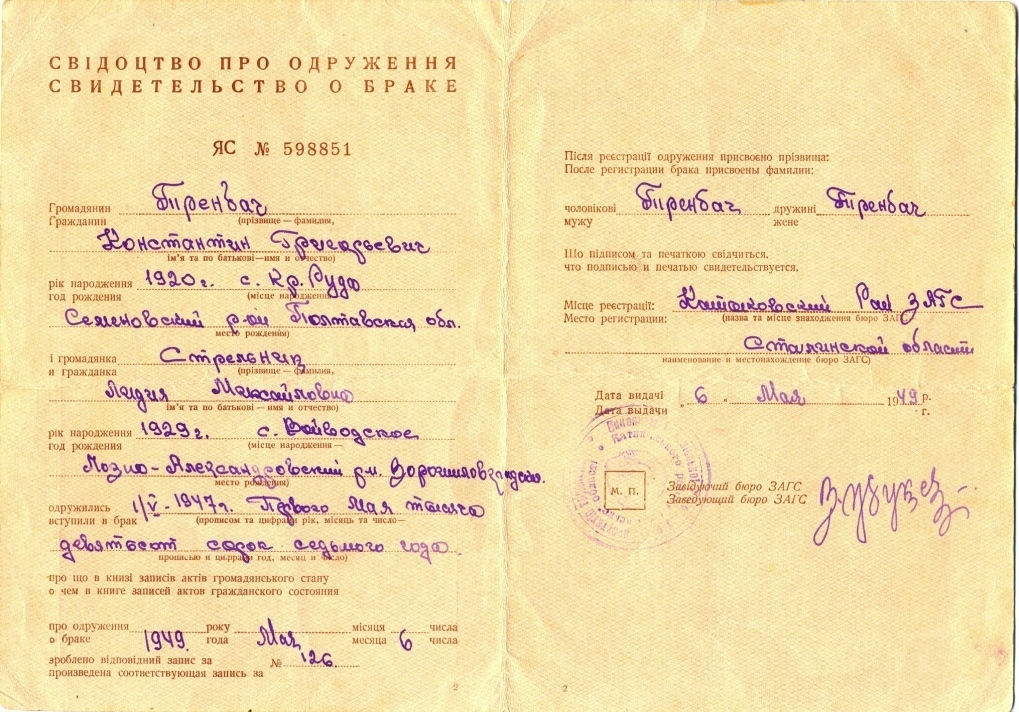 СВІДОЦТВО ПРО ОДРУЖЕННЯ
СВИДЕТЕЛЬСТВО О БРАКЕ
ЯС № 598851
Громадянин Піренбач
Гражданин (прізвище — фамилия,
Константин Григорьевич
ім'я та по батькові—имя и отчество)
рік народження 1920 г. с. Кр. Руда
год рождения (місце народження
Семеновский р-он Полтавская обл.
место рождения)
і громадянка Стрельник
и гражданка (прізвище — фамилия,
Лидия Максаймовна
ім'я та по батькові — имя и отчество)
рік народження 1929 г. с. Войводское
год рождения (місце народження —
Лозно-Александровский
место рождения)
одружились 1/V - 1947 г. Первого Мая тысяча
вступили в брак (прописом та цифрами рік, місяць та число—
девятьсот сорок седьмого года
прописью и цифрами год, месяц и число)
про що в книзі записів актів громадянського стану
о чем в книге записей актов гражданского состояния
про одруження року місяця числа
о браке 1949 года Мая месяца 6 числа
зроблено відповідний запис за № 126.
произведена соответствующая запись за
2
Після реєстрації одруження присвоєно прізвища:
После регистрации брака присвоены фамилии:
чоловікові Піренбач дружині Піренбач
мужу жене
Що підписом та печаткою свідчиться.
что подписью и печатью свидетельствуется.
Місце реєстрації: Рай ЗАГС
Место регистрации: (назва та місце знаходження бюро ЗАГС
Сталинской области
наименование и местонахождение бюро ЗАГС)
Дата видачі „ 6 „ Мая 1949 р.
Дата выдачи г.
М. П.
Завідуючий бюро ЗАГС
Заведующий бюро ЗАГС
2